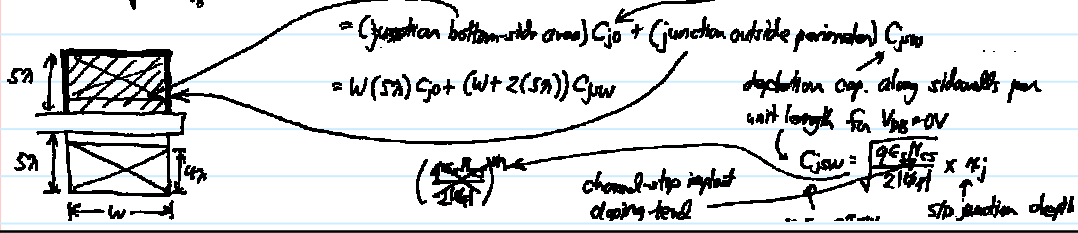 = (junction bottom-side area) Cj0 + (junction outside perimeter) Cjsw
= W(5λ) Cj0 + (W + 2(5λ)) Cjsw
depletion cap. along sidewalls per
unit length for VDB = 0V
Cjsw = √(qεsNcs / 2|φF|) × xj
channel-stop implant
doping level
S/D junction depth
5λ
5λ
4λ
W